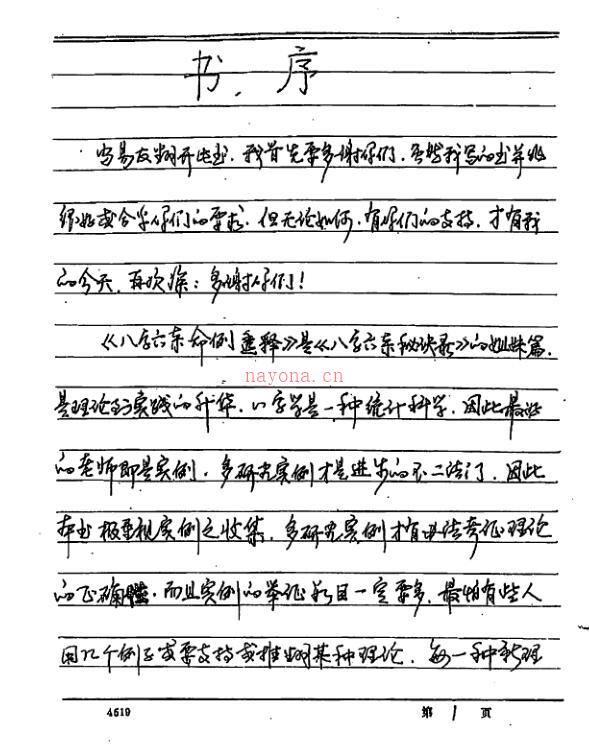 书序
当易友翻开此书，我首先要多谢你们，虽然我写的书并非
很好或合乎你们的要求，但无论如何，有你们的支持，才有我
的今天，再次深：多谢你们！
《八字六亲命例选释》是《八字六亲秘诀录》的姐妹篇，
nayona.cn
是理论到实践的升华，八字学是一种统计科学，因此最好
的老师即是实例，多研究实例才是进步的不二法门，因此
本书极重视实例之收集，多研究实例才有办法考证理论
的正确性，而且实例的举证数目一定要多，最怕有些人
用几个例子就要支持或推翻某种理论，每一种新理
4619
第 1 页